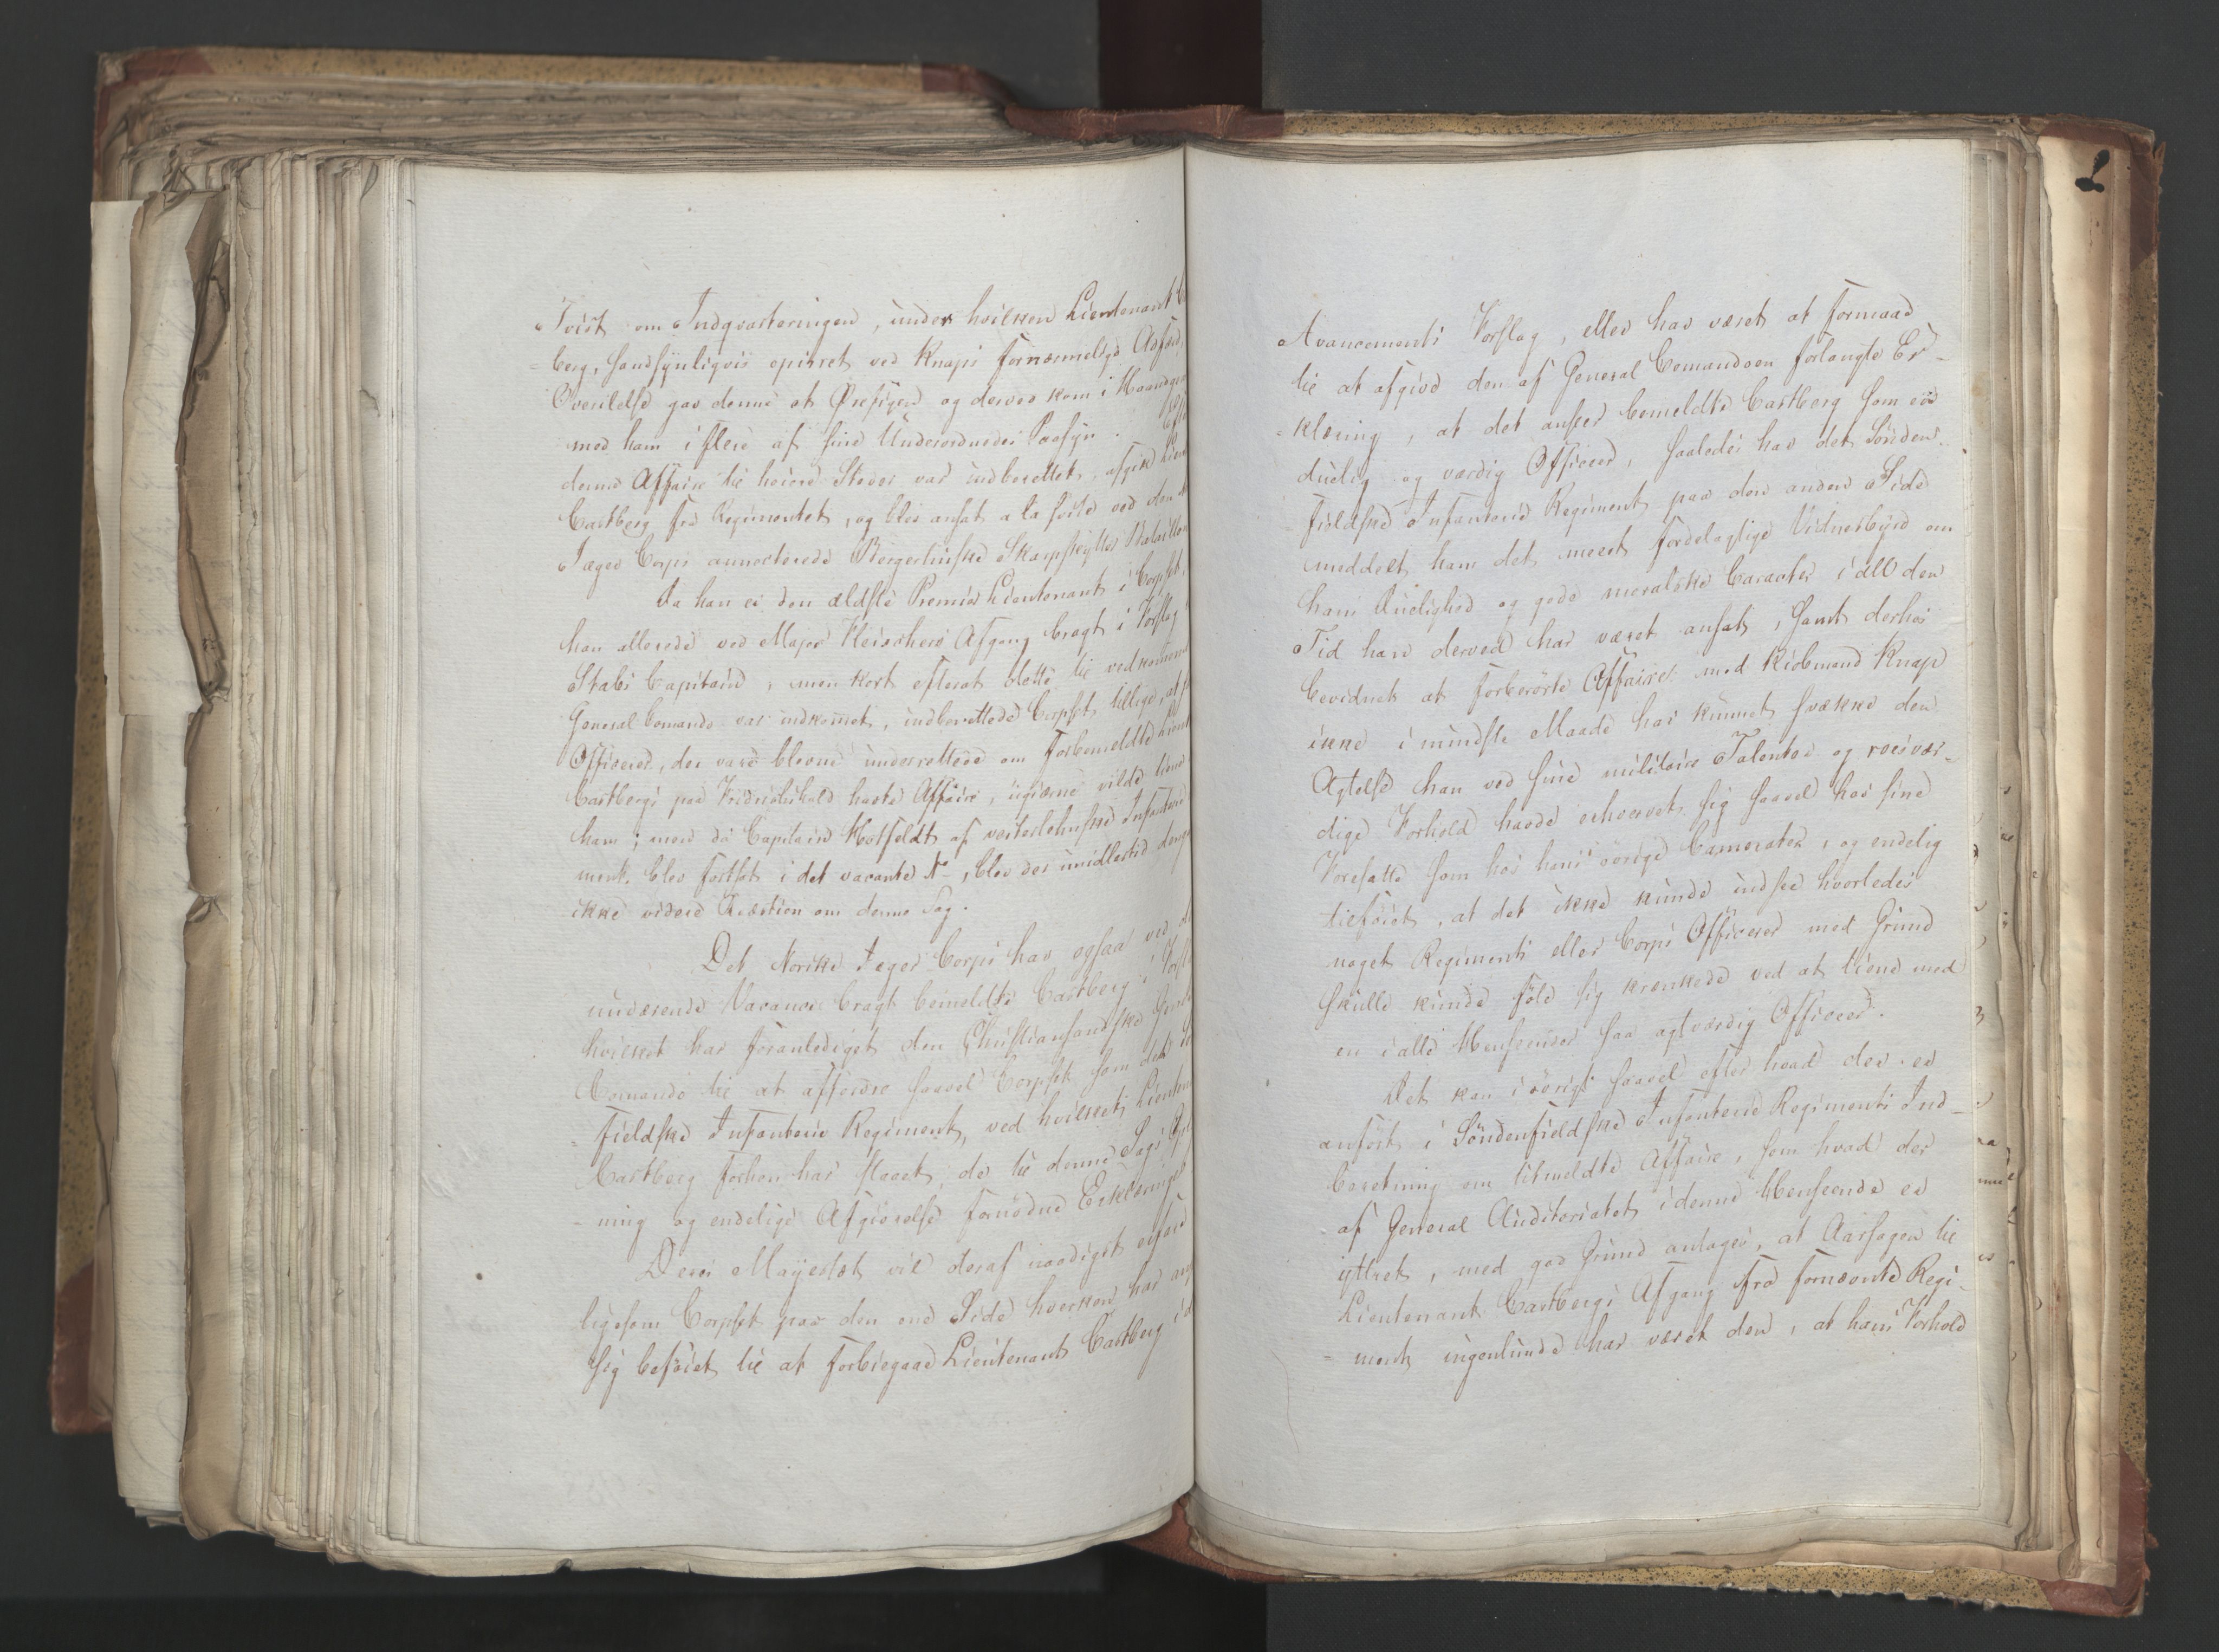 Tvist om Indqvarteringen, under hvilken Lieutenant
berg, sandsynligviis opirret ved Knaps fornærmelige Adfærd,
Overilelse gav denne et Ørefigen og derved kom i Haandge
med ham i flere af sine Underordnedes Paasyn. Efte
denne Affaire til høiere Steder var indberettet, afgik Lieut
Castberg fra Regimentet, og blev ansat a la suite ved den
Jæger Corps annecterede Bergenhuuske Skarpskytter Bataillon
Da han er den ældste Premier Lieutenant i Corpset,
han allerede ved Major Fleischers Afgang bragt i Forslag
Stabs Capitain, men kort efterat dette til vedkommende
General Comando var indkommet, indberettede Corpset tillige, at
Officerer, der vare blevne underrettede om forbemeldte Lieut
Castbergs paa Fridrichshald havte Affaire, ugierne vilde tiene
ham; men da Capitain Hotfeldt af vesterlehnske Infanterie
ment, blev forsat i det vacante N-, blev der imidlertid
ikke videre Qvæstion om denne Sag.
Det Norske Jæger Corps har ogsaa ved
nuværende Vacance bragt bemeldte Castberg i Forslag
hvilket har foranlediget den Christiansandske General
Comando til at affordre saavel Corpset som det
fieldske Infanterie Regiment, ved hvilket Lieutenant
Castberg forhen har staaet, de til denne Sags
ning og endelige Afgiørelse fornødne Erklæringer
Deres Mayestæt vil deraf naadigst erfare
ligesom Corpset paa den ene Side hverken har
sig beføiet til at forbiegaae Lieutenant Castberg i
Avancements Forslag, eller har været at formaae
til at afgive den af General Comandoen forlangte Er-
klæring, at det anseer bemeldte Castberg som en
duelig og værdig Officeer, saaledes har det Sønden-
fieldske Infanterie Regiment paa den anden Side
meddelt ham det meest fordelagtige Vidnesbyrd om
hans Duelighed og gode moralske Caracter i all den
Tid han derved har været ansat, samt derhos
bevidnet at forberørte Affaire med Kiøbmand Knap
ikke i mindste Maade har kunnet svække den
Agtelse han ved sine militaire Talenter og roesvær-
dige Forhold havde erhvervet sig saavel hos sine
Foresatte som hos hans øvrige Camerater, og endelig
tilføiet, at det ikke kunde indsee hvorledes
noget Regiments eller Corps Officerer med Grund
skulle kunde føle sig krænkede ved at tiene med
en i alle Henseender saa agtværdig Officeer.
Det kan i øvrigt saavel efter hvad der er
anført i Søndenfieldske Infanterie Regiments Ind-
beretning om titmeldte Affaire, som hvad der
af General Auditoriatet i denne Henseende er
yttret, med god Grund antages, at Aarsagen til
Lieutenant Castbergs Afgang fra fornævnte Regi-
ment ingenlunde har været den, at hans Forhold